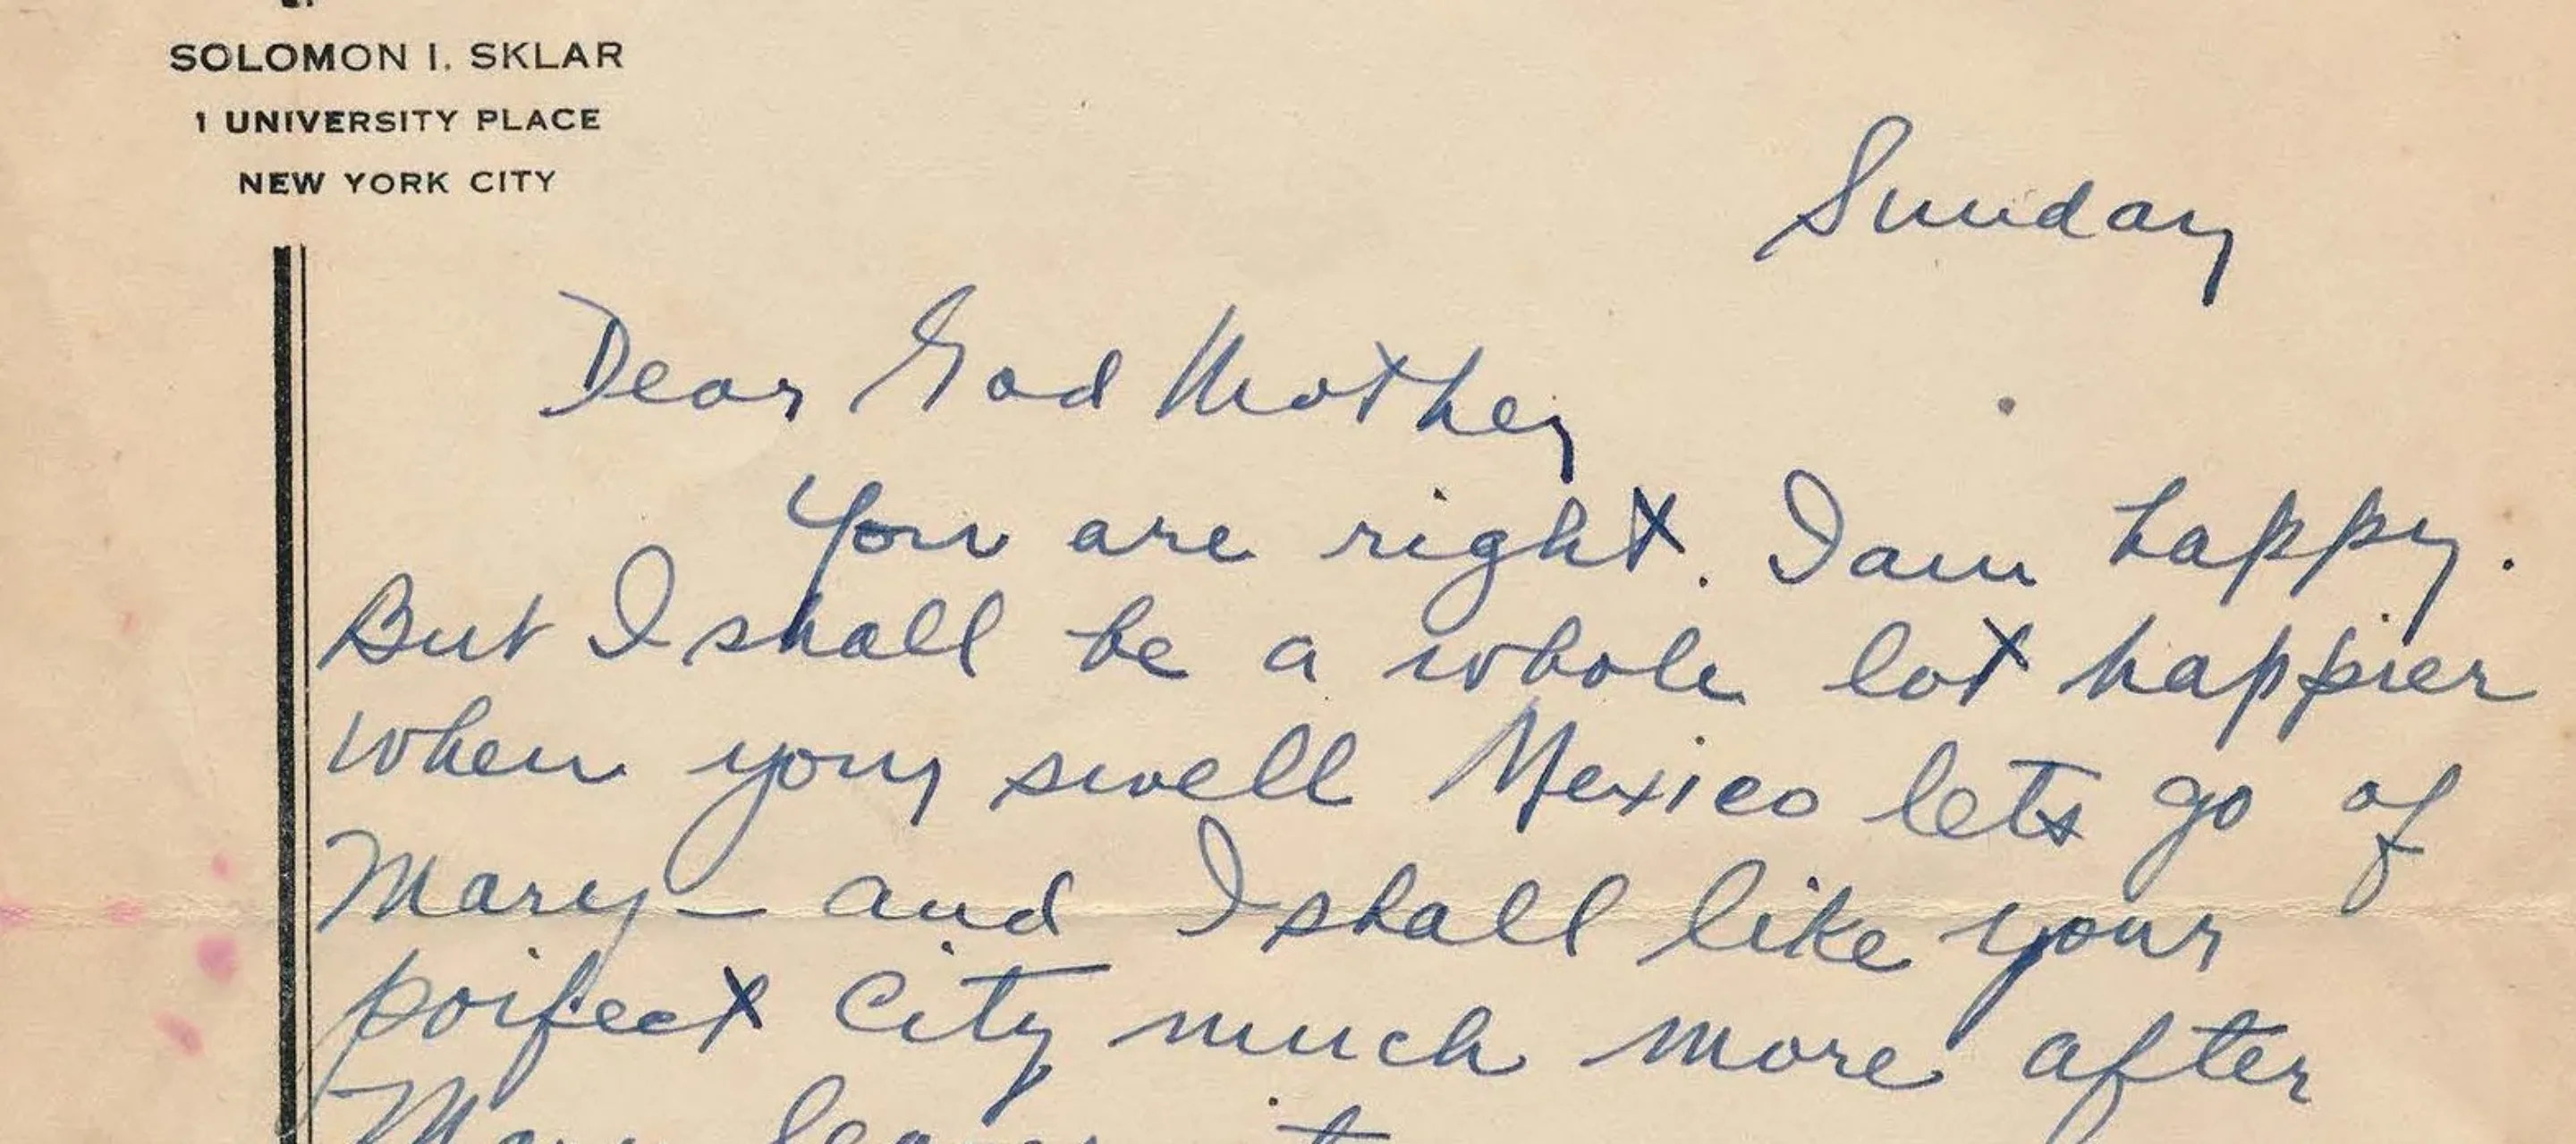 SOLOMON I. SKLAR
1 UNIVERSITY PLACE
NEW YORK CITY
Sunday
Dear God Mother
You are right. I am happy.
But I shall be a whole lot happier
when your swell Mexico lets go of
Mary — and I shall like your
poifect City much more after
Mary leaves it